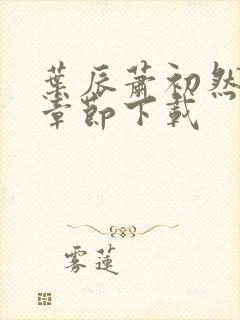 葉辰蕭初然
章節下載
雾蓮